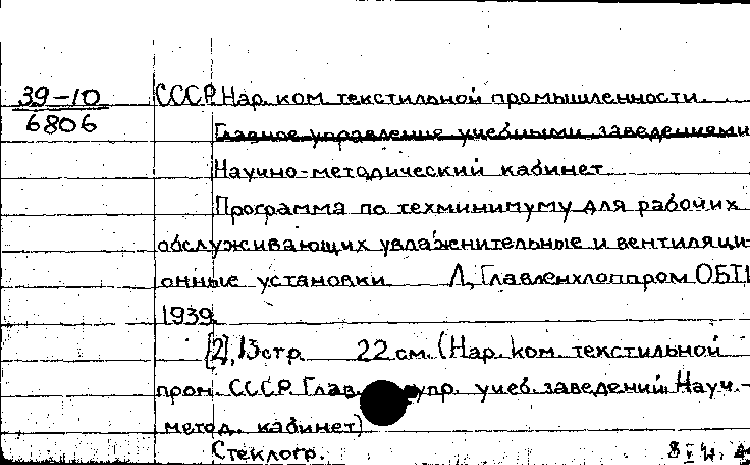 39-10
6806
СССР. Нар. ком. текстильной промышленности.
Главное управление учебными заведениями
Научно-методический кабинет
Программа по техминимуму для рабочих
обслуживающих увлажнительные и вентиляци-
онные установки Л, Главленхлоппром ОБТИ
1939.
[2], 13 стр. 22 см. (Нар. ком. текстильной
пром. СССР. Глав. упр. учеб. заведений. Науч.-
метод. кабинет)
Стеклогр.